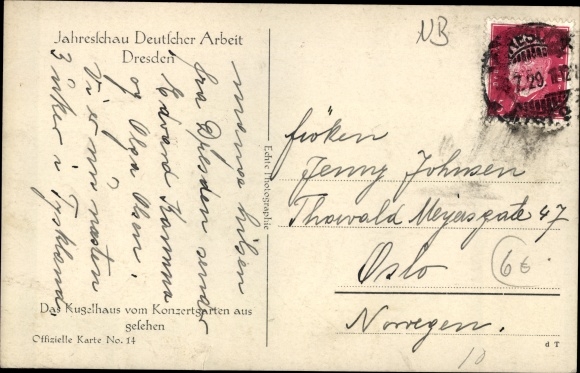 Jahresschau Deutscher Arbeit
Dresden
mange hilsen
fra Dresden sender
Edvard Hamma
og Olga Olsen.
Vi er nu nesten
3 uker i Tyskland.
Das Kugelhaus vom Konzertgarten aus
gesehen
Offizielle Karte No. 14
Echte Photographie
NB
7.29.
fröken
Jenny Johnsen
Thorvald Meyersgate 47
Oslo
66
Norwegen.
10
d T